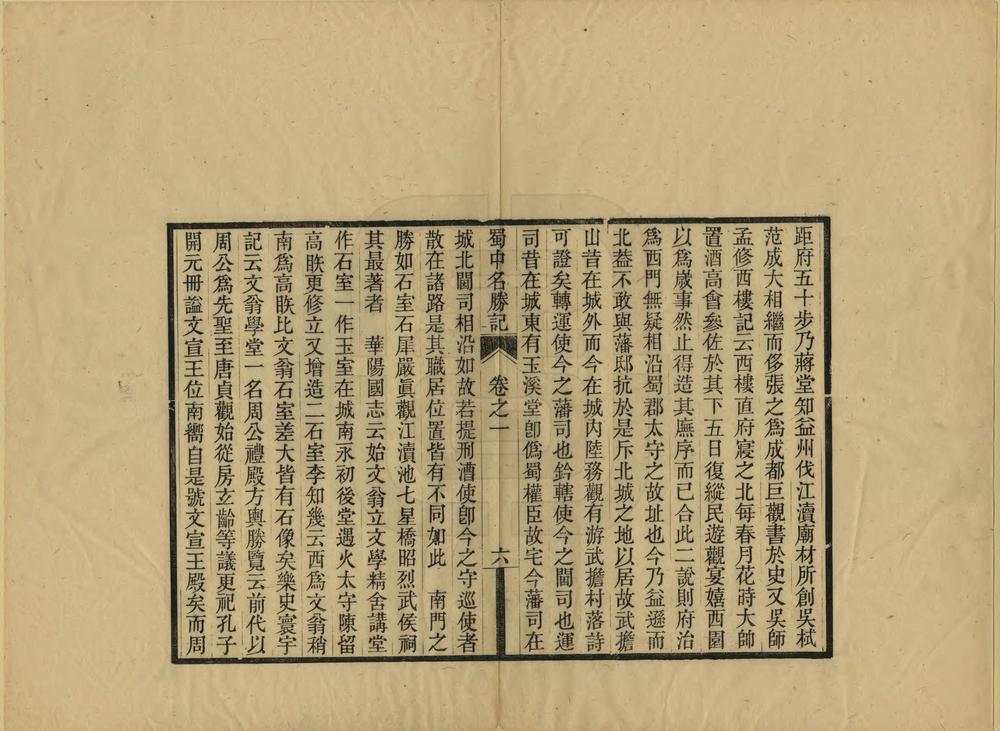 距府五十步乃蔣堂知益州伐江瀆廟材所創吳栻
范成大相繼而侈張之爲成都巨觀書於史又吳師
孟修西樓記云西樓直府寢之北每春月花時大師
置酒高會參佐於其下五日復縱民遊觀宴嬉西園
以爲歲事然止得造其廡序而已合此二說則府治
爲西門無疑相沿蜀郡太守之故址也今乃益遜而
北葢不敢與藩邸抗於是斥北城之地以居故武擔
山昔在城外而今在城內陸務觀有游武擔村落詩
可證矣轉運使今之藩司也鈐轄使今之閫司也運
司昔在城東有玉溪堂卽僞蜀權臣故宅今藩司在
蜀中名勝記 卷之一 六
城北閫司相沿如故若提刑漕使卽今之守巡使者
散在諸路是其職居位置皆有不同如此 南門之
勝如石室石犀嚴眞觀江瀆池七星橋昭烈武侯祠
其最著者 華陽國志云始文翁立文學精舍講堂
作石室一作玉室在城南永初後堂遇火太守陳留
高䀢更修立又增造二石室李知幾云西爲文翁稍
南爲高䀢比文翁石室差大皆有石像矣樂史寰宇
記云文翁學堂一名周公禮殿方輿勝覽云前代以
周公爲先聖至唐貞觀始從房玄齡等議更祀孔子
開元冊謚文宣王位南嚮自是號文宣王殿矣而周